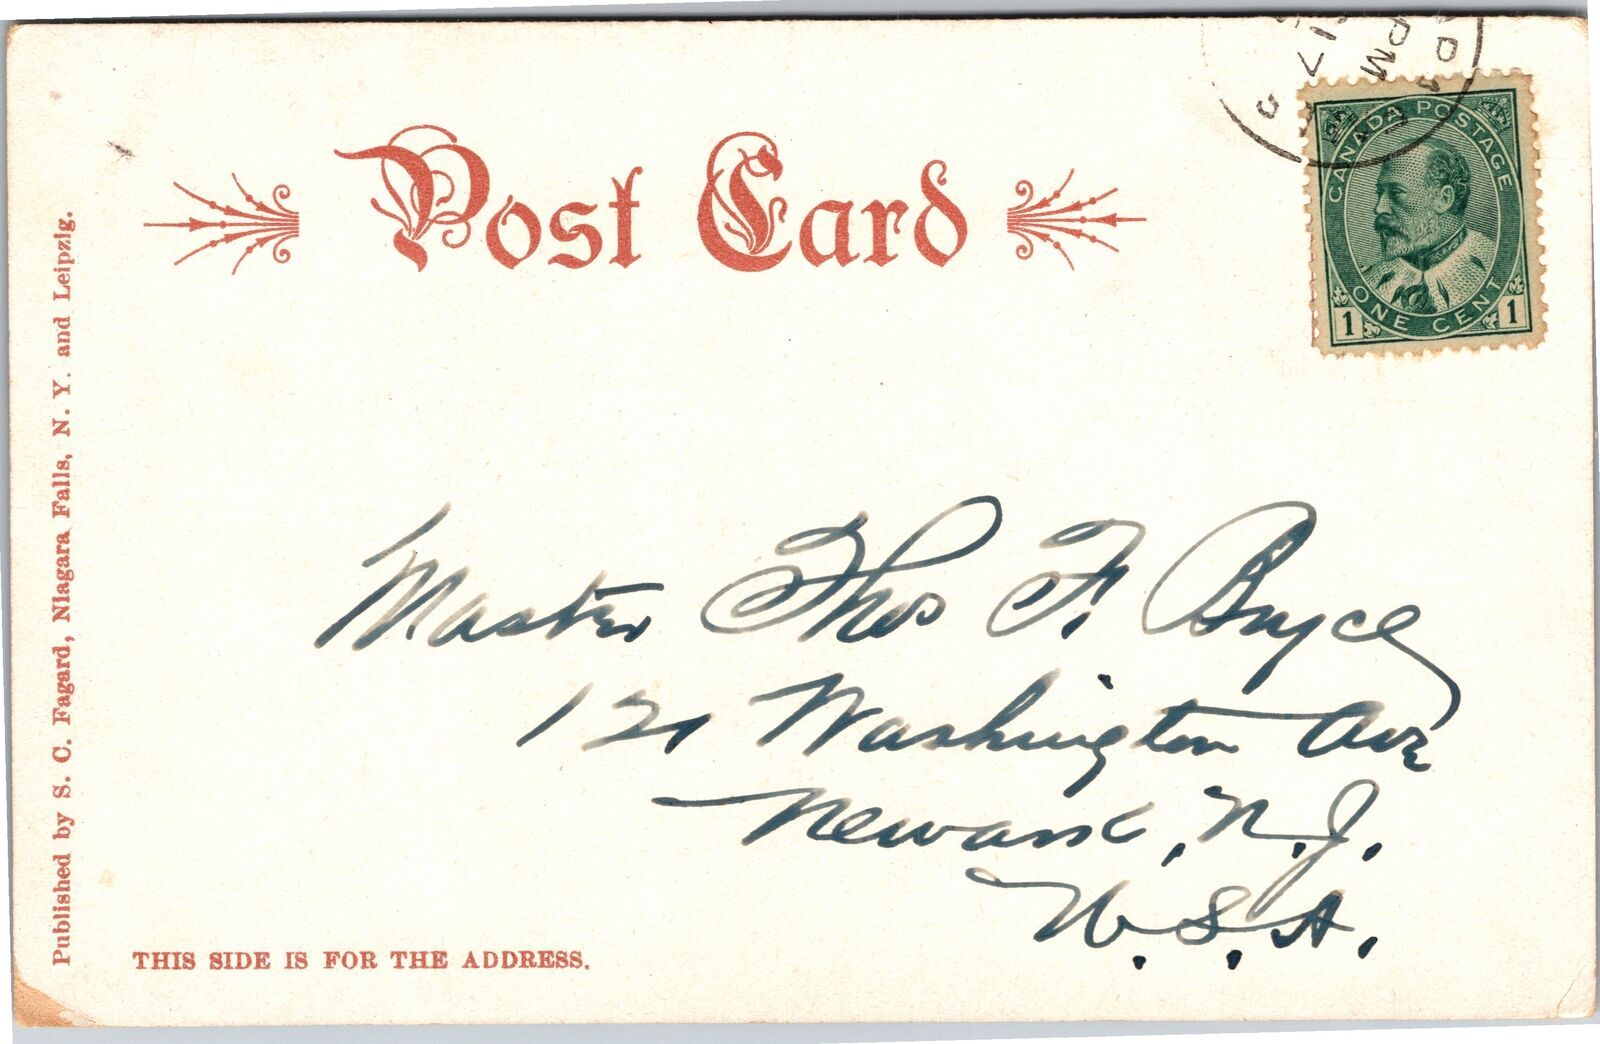 Post Card
CANADA POSTAGE
ONE CENT
1 1
PM
17
Master Thos F. Bryce
121 Washington Ave
Newark, N.J.
U.S.A.
THIS SIDE IS FOR THE ADDRESS.
Published by S. C. Fagard, Niagara Falls, N. Y. and Leipzig.